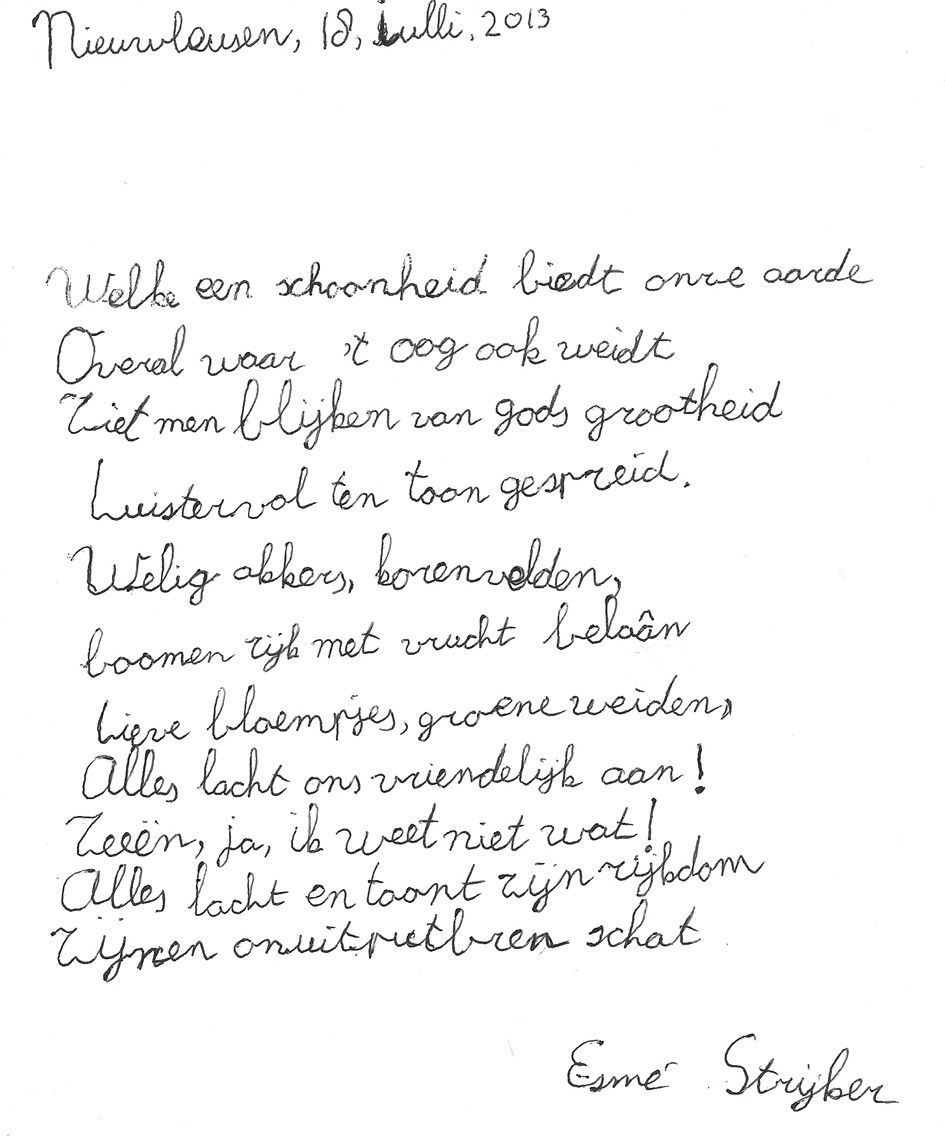 Nieuwleusen, 18, Julli, 2013
Welke een schoonheid biedt onze aarde
Overal waar 't oog ook weidt
Ziet men blijken van gods grootheid
Luistervol ten toon gespreid.
Welig akkers, korenvelden,
boomen rijk met vrucht belaân
Lieve bloempjes, groene weiden,
Alles lacht ons vriendelijk aan!
Zeeën, ja, ik weet niet wat!
Alles lacht en toont zijn rijkdom
Zijnen onuitputbren schat
Esmé Strijker